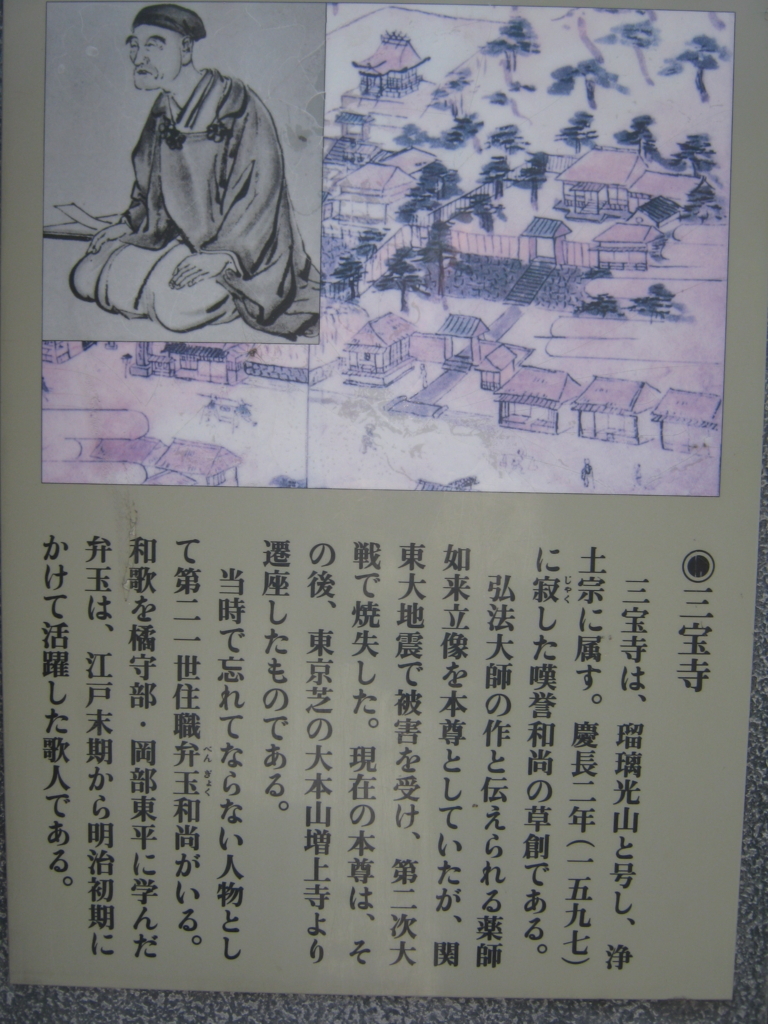 ◉三宝寺
三宝寺は、瑠璃光山と号し、浄
土宗に属す。慶長二年(一五九七)
に寂じゃくした嘆誉和尚の草創である。
弘法大師の作と伝えられる薬師
如来立像を本尊としていたが、関
東大地震で被害を受け、第二次大
戦で焼失した。現在の本尊は、そ
の後、東京芝の大本山増上寺より
遷座したものである。
当時で忘れてならない人物とし
て第二一世住職弁玉べんぎょく和尚がいる。
和歌を橘守部・岡部東平に学んだ
弁玉は、江戸末期から明治初期に
かけて活躍した歌人である。